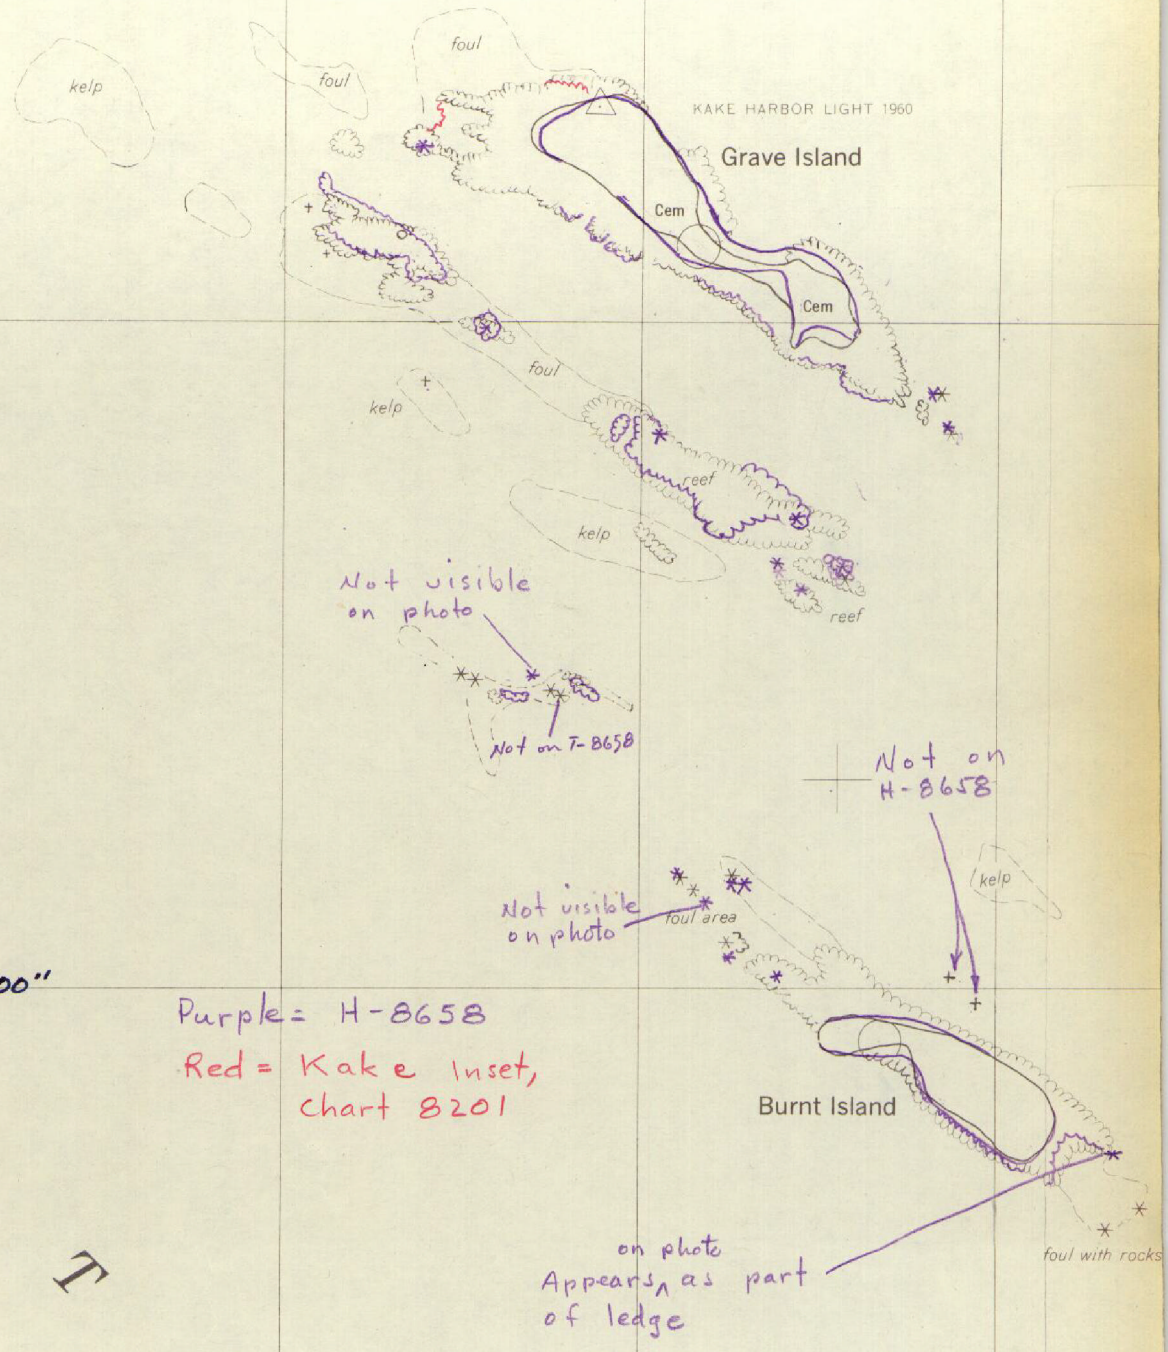 foul
foul
kelp
KAKE HARBOR LIGHT 1960
Grave Island
Cem
Cem
foul
kelp
reef
kelp
reef
Not visible
on photo
Not on T-8658
Not on
H-8658
kelp
Not visible
on photo
foul area
00"
Purple = H-8658
Red = Kake Inset,
Chart 8201
Burnt Island
on photo
Appears ^ as part
of ledge
foul with rocks
T